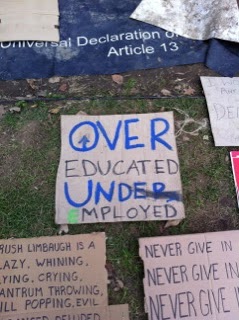 Universal Declaration of
Article 13
OVER
EDUCATED
UNDER
EMPLOYED
RUSH LIMBAUGH IS A
LAZY, WHINING,
LYING, CRYING,
TANTRUM THROWING,
PILL POPPING, EVIL
NEVER GIVE IN
NEVER GIVE IN
NEVER GIVE IN